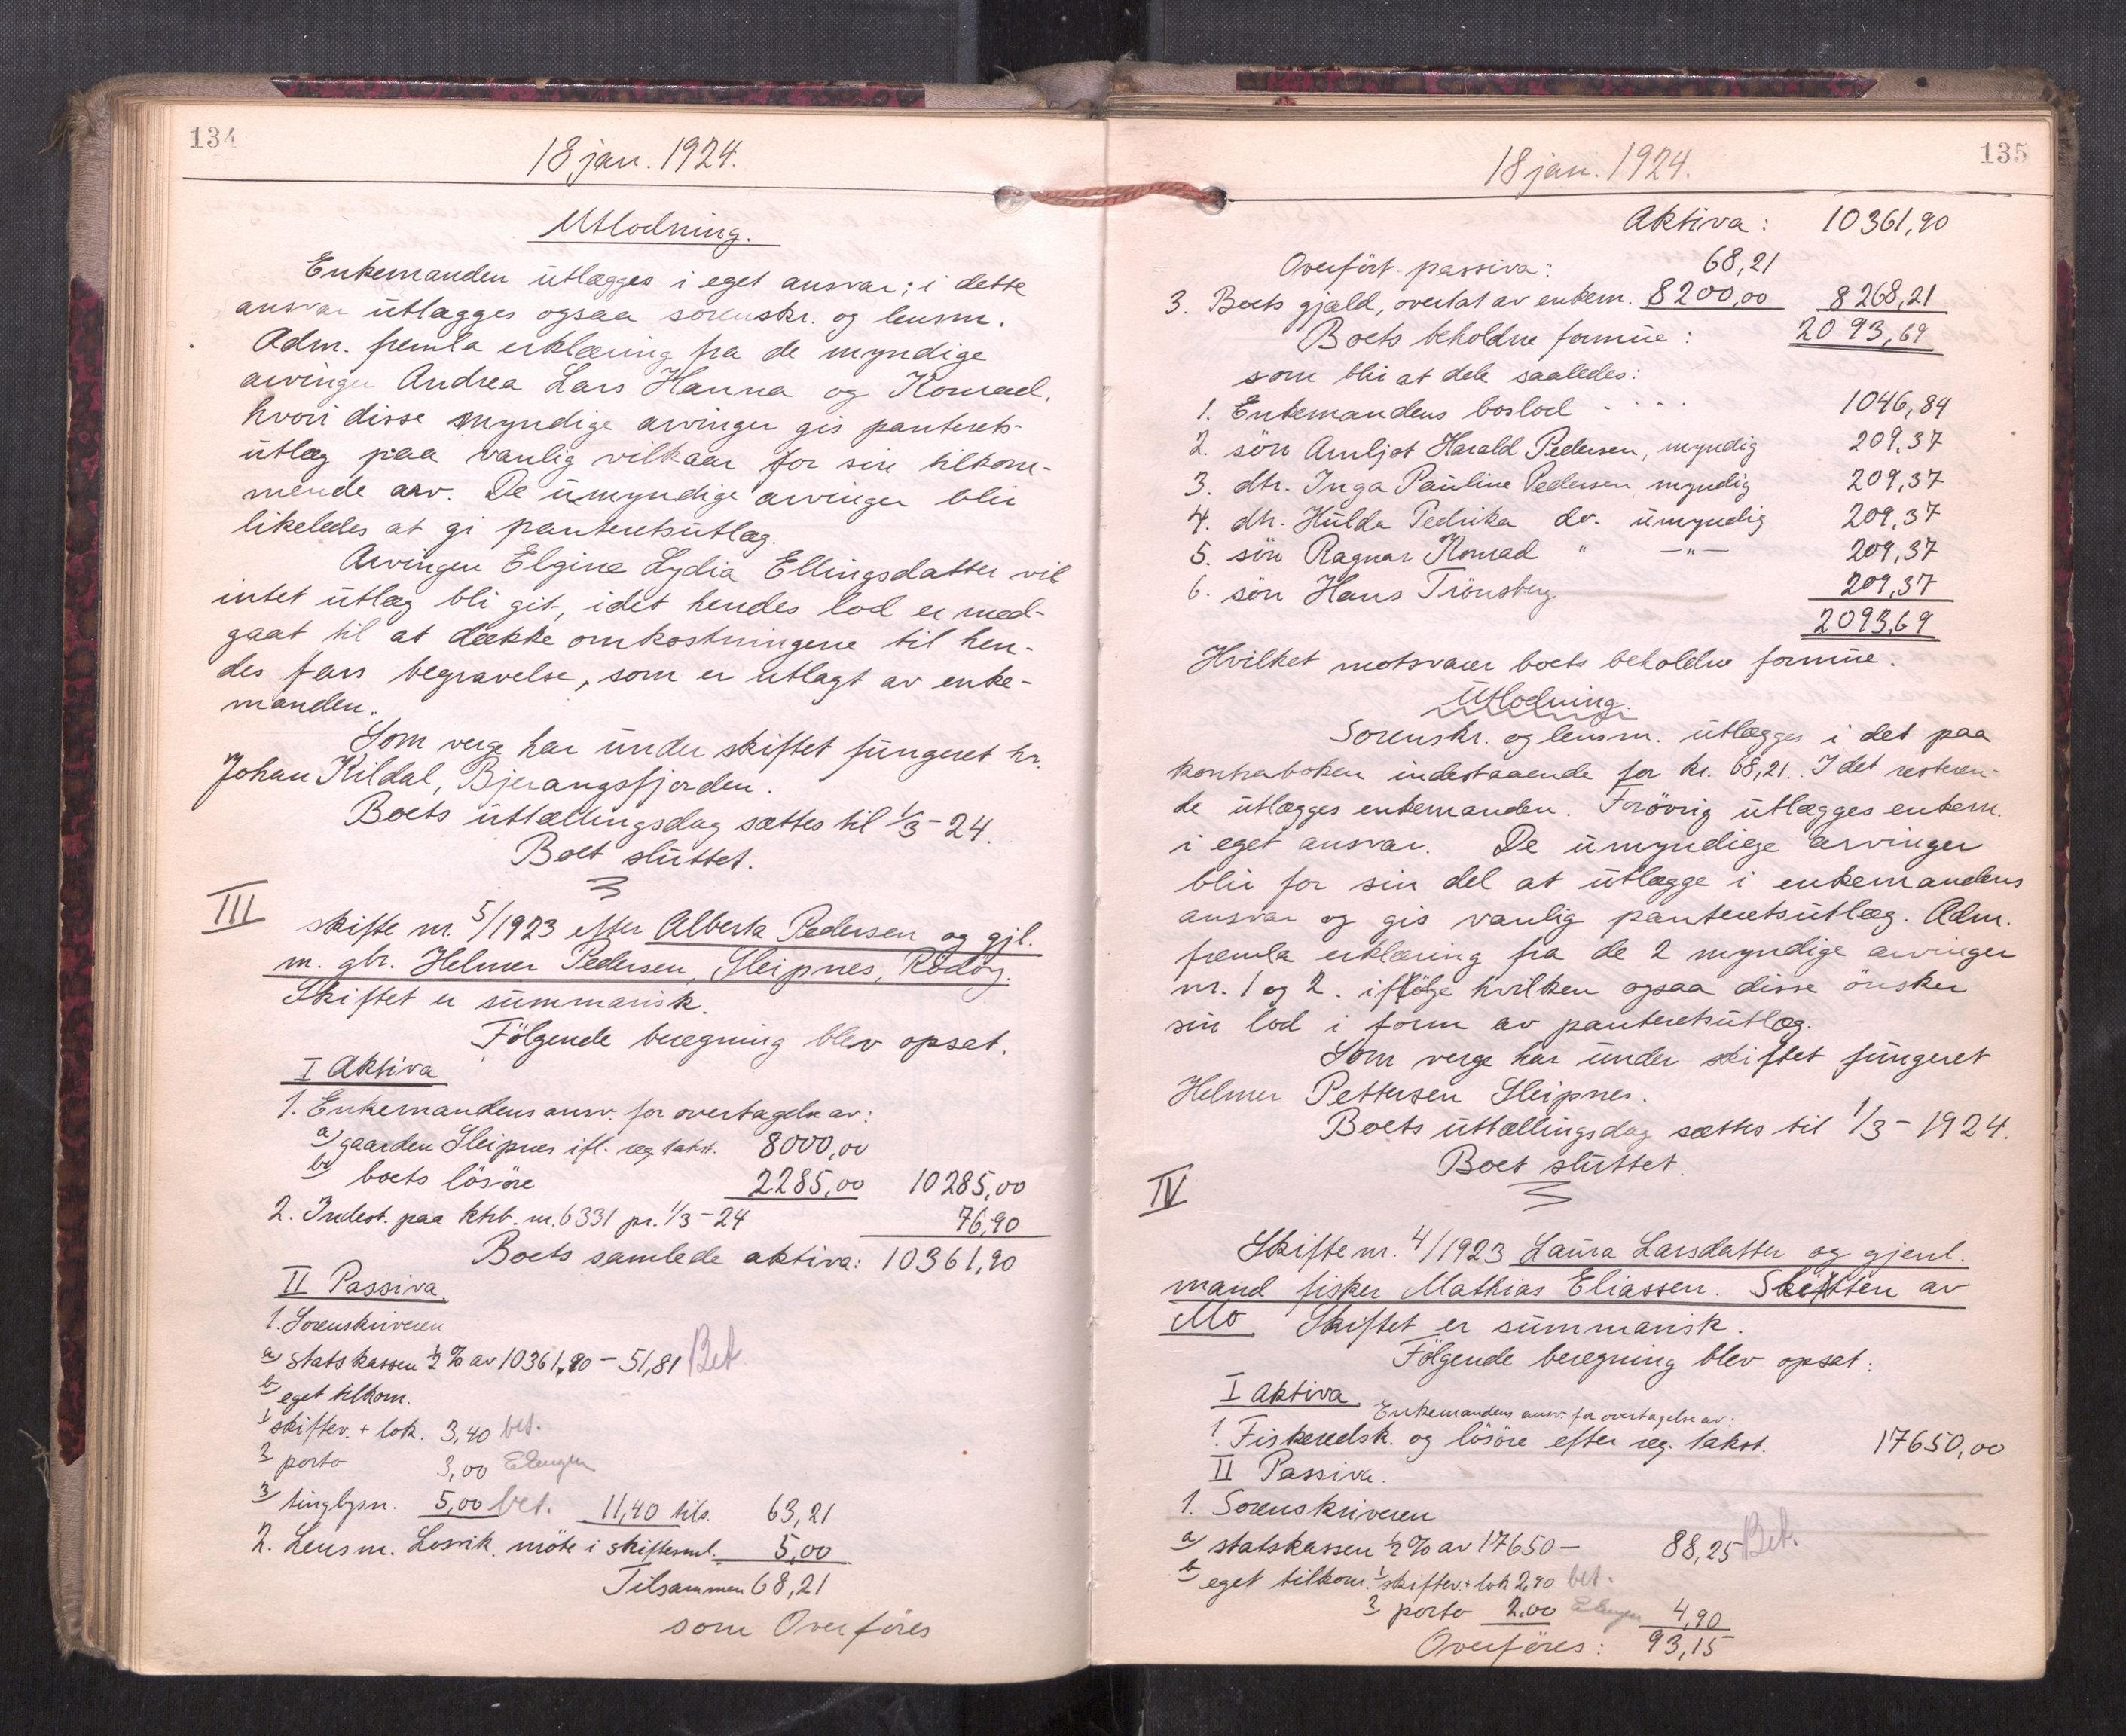 134
18 jan. 1924.
Utlodning.
Enkemanden utlægges i eget ansvar; i dette
ansvar utlægges ogsaa sorenskr. og lensm.
Adm. fremla erklæring fra de myndige
arvinger Andrea Lars Hanna og Konrad,
hvori disse myndige arvinger gis panterets-
utlæg paa vanlig vilkaar for sin tilkom-
mende arv. De umyndige arvinger blir
likeledes at gi panteretsutlæg.
Arvingen Elgine Lydia Ellingsdatter vil
intet utlæg bli git, idet hendes lod er med-
gaat til at dække omkostningene til hen-
des fars begravelse, som er utlagt av enke-
manden.
Som verge har under skiftet fungeret hr.
Johan Kildal, Bjerangsfjorden.
Boets utlællingsdag sættes til 1/3 - 24.
Boet sluttet.
III
skifte nr. 5/1923 efter Alberta Pedersen og gjl.
m. gbr. Helmer Pedersen, Sleipnes, Rødøy.
Skiftet er summarisk.
Følgende beregning blev opsat.
I Aktiva
1. Enkemandens ansv. for overtagelse av:
a) gaarden Sleipnes ifl. reg. takst. 8000,00
b) boets løsøre 2285,00 10285,00
2. Indest. paa ktrb. nr. 6331 pr. 1/3 - 24 76,90
Boets samlede aktiva: 10361,90
II Passiva.
1. Sorenskriveren
a) statskassen ½ % av 10361,90 - 51,81 Bet
b) eget tilkom.
1) skiftev. + lok. 3,40 bet.
2) porto 3,00
3) tinglysn. 5,00 bet. 11,40 tils. 63,21
2. Lensm. Lesvik, møte i skiftesml. 5,00
Tilsammen 68,21
som Overføres
135
18 jan. 1924.
Aktiva: 10361,90
Overført passiva: 68,21
3. Boets gjæld, overtat av enkem. 8200,00 8268,21
Boets beholdne formue: 2093,69
som blir at dele saaledes:
1. Enkemandens boslod . . . . 1046,84
2. søn Arnljot Harald Pedersen, myndig 209,37
3. dtr. Inga Pauline Pedersen, myndig 209,37
4. dtr. Hulda Pedrika do. umyndig 209,37
5. søn Ragnar Konrad " —"— 209,37
6. søn Hans Trønsberg 209,37
2093,69
Hvilket motsvarer boets beholdne formue.
Utlodning.
Sorenskr. og lensm. utlægges i det paa
kontraboken indestaaende for kr. 68,21. I det resteren-
de utlægges enkemanden. Forøvrig utlægges enkem.
i eget ansvar. De umyndige arvinger
blir for sin del at utlægge i enkemandens
ansvar og gis vanlig panteretsutlæg. Adm.
fremla erklæring fra de 2 myndige arvinger
nr. 1 og 2. ifølge hvilken ogsaa disse ønsker
sin lod i form av panteretsutlæg.
Som verge har under skiftet fungeret
Helmer Pettersen Sleipnes.
Boets utlællingsdag sættes til 1/3 - 1924.
Boet sluttet.
IV
Skifte nr. 4/1923 Laura Larsdatter og gjenl.
mand fisker Mathias Eliassen. Skiften av
Mo Skiftet er summarisk.
Følgende beregning blev opsat:
I Aktiva.
Enkemandens ansv. for overtagelse av:
1. Fiskeredsk. og løsøre efter reg. takst. 17650,00
II Passiva.
1. Sorenskriveren
a) statskassen ½ % av 17650 — 88,25 Bet.
b) eget tilkom. 1) skiftev. + lok 2,90 bet.
2) porto 2.00 4,90
Overføres: 93,15